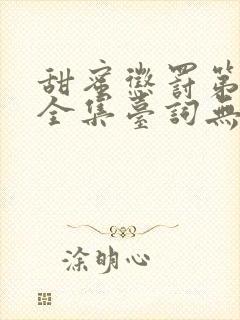 甜蜜懲罰第
全集臺詞無
涂明心